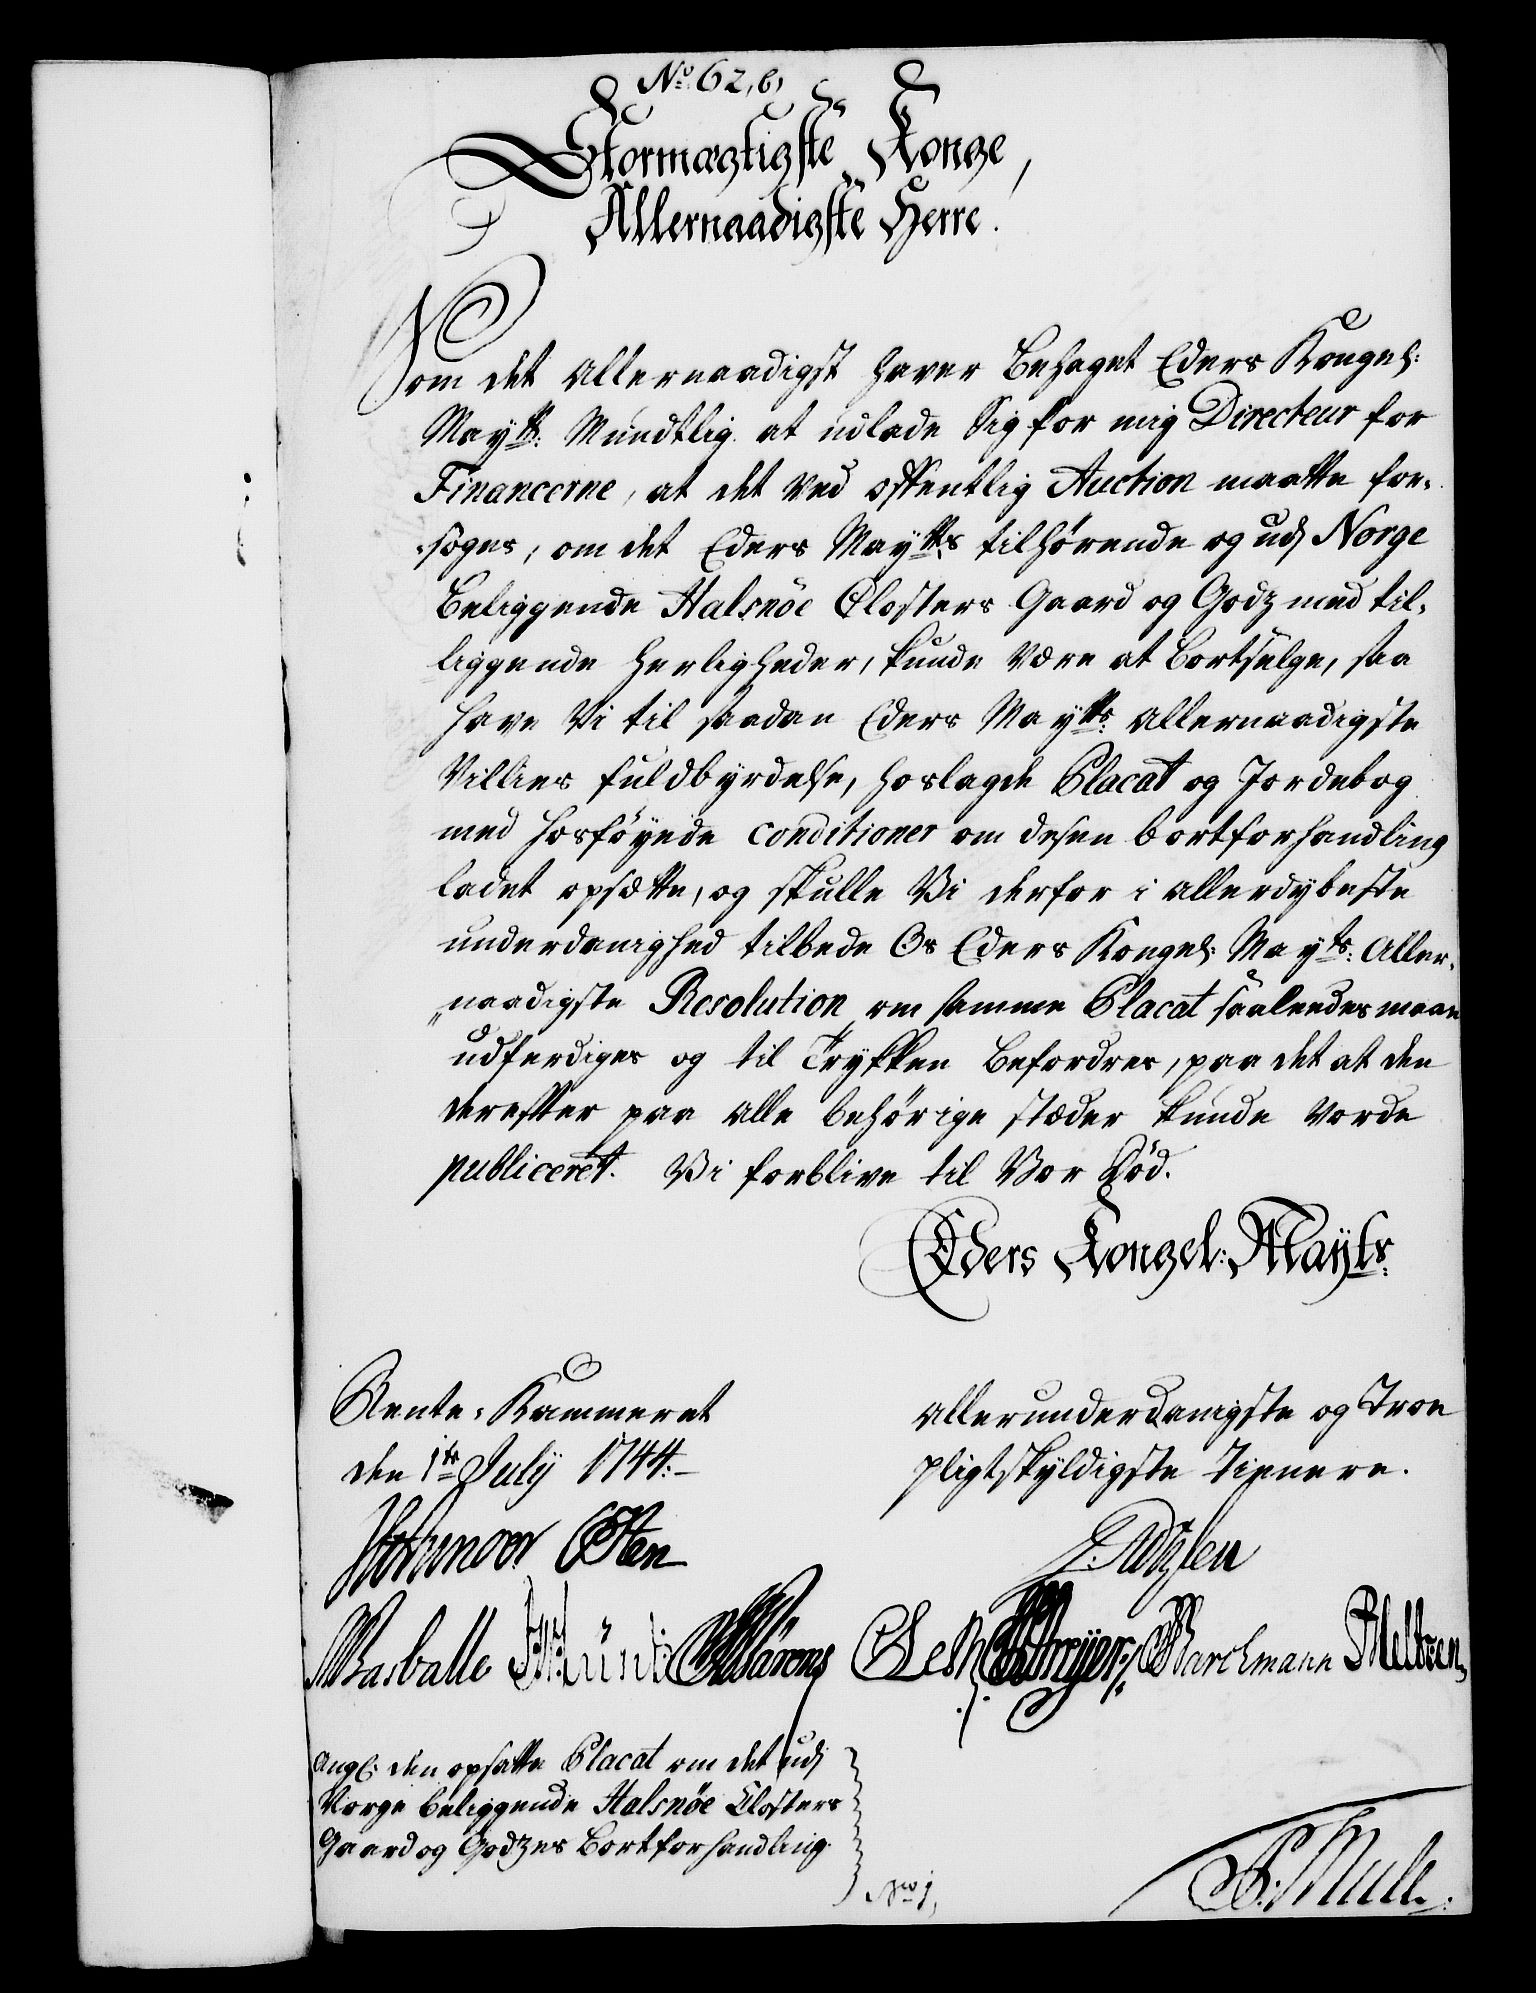 No. 62, b,
Stormægtigste Konge,
Allernaadigste Herre.
Som det allernaadigst haver behaget Eders Kongel:
Mayts: Mundtlig at udlade sig for mig Directeur for
Financerne, at det ved offentlig Auction maatte for-
-søges, om det Eders Maytts tilhørende og udj Norge
beliggende Halsnöe Closters Gaard og Godz med til-
liggende herligheder, kunde være at bortsælge, saa
have Vi til saadan Eders Maytts: allernaadigste
Villies fuldbyrdelse, hoslagde Placat og Jordebog
med hosföyede conditioner om desen bortforhandling
ladet opsætte, og skulle Vi derfor i allerdybeste
underdanighed tilbede Os Eders Kongel: Mayts: Aller-
„naadigste Resolution, om samme Placat saaledes maae
udferdiges og til Trykken befordres, paa det at den
derefter paa alle behörige stæder kunde vorde
publiceret. Vi forblive til Vor Död.
Eders Kongel: Mayts:
Rente-Kammeret
den 1te July 1744.
allerunderdanigste og Troe
pligtskyldigste Tienere.
Masballe Wärens Barchmann Meltzen
Angl: den opsatte Placat om det udj
Norge beliggende Halsnöe Closters
Gaard og Godzes Bortforhandling
No 1,